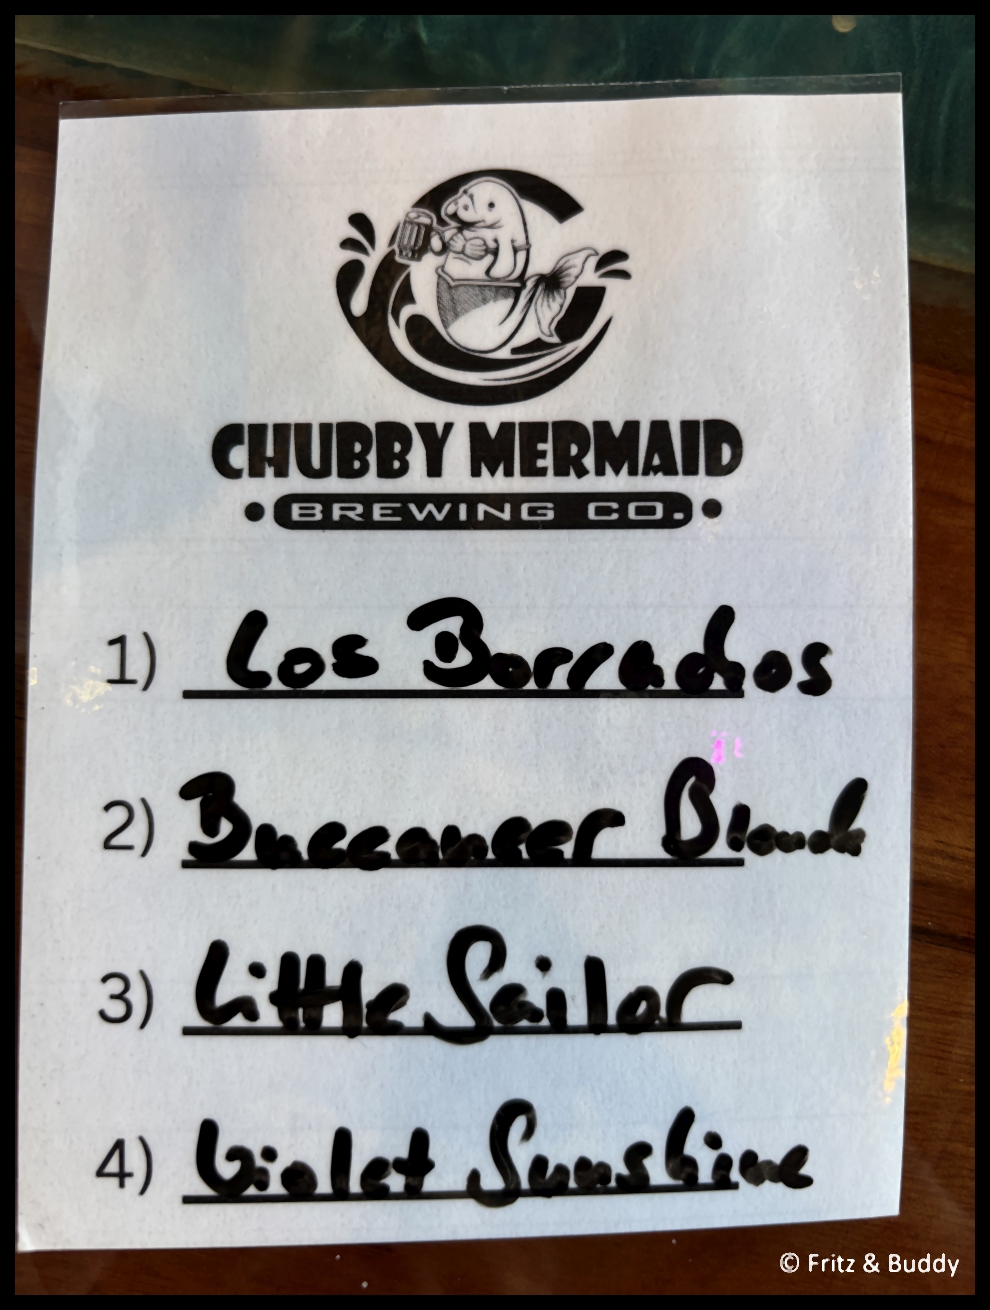 CHUBBY MERMAID
• BREWING CO. •
1) Los Borrachos
2) Buccaneer Blonde
3) Little Sailor
4) Violet Sunshine
© Fritz & Buddy